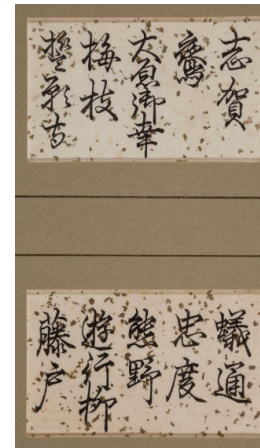 志賀
鸞
大原御幸
梅枝
誓願寺
蟻通
忠度
熊野
遊行柳
藤戸